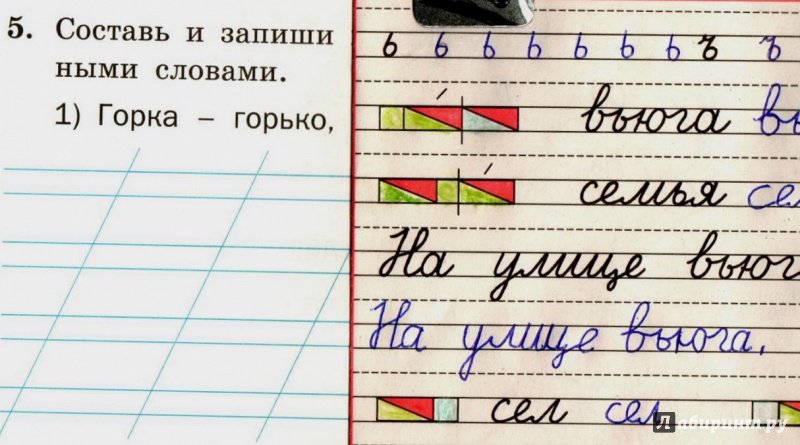 5. Составь и запиши
ными словами.
1) Горка – горько,
ь ь ь ь ь ь ь ъ ъ
вьюга вь
семья сем
На улице вьюг
На улице вьюга.
сел сел
Лабиринт.ру